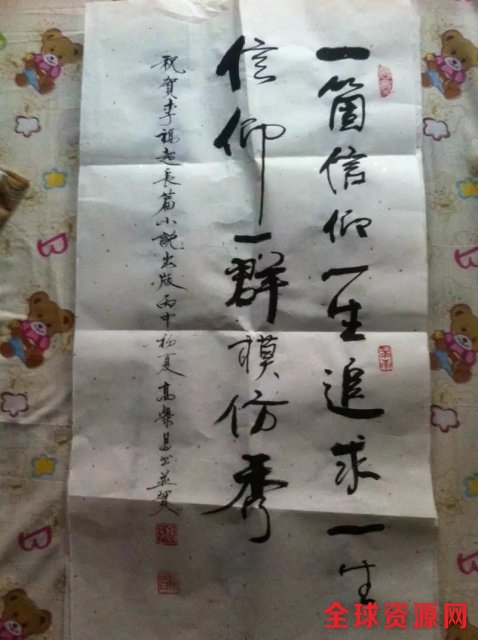 一箇信仰一生追求一生
信仰一群模仿秀
祝賀李福起長篇小説出版丙申初夏高榮昌书並賀
全球资源网